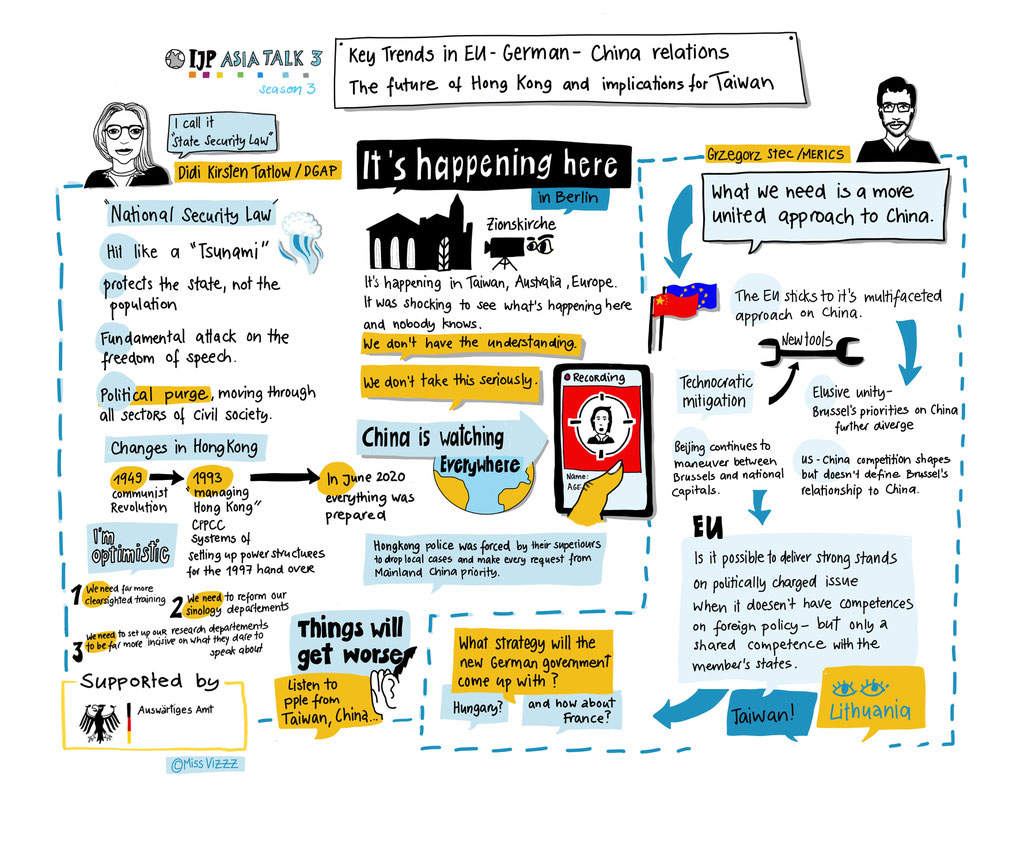 IJP ASIA TALK 3
season 3
Key Trends in EU - German - China relations
The future of Hong Kong and implications for Taiwan
I call it
"State Security Law"
Didi Kirsten Tatlow / DGAP
"National Security Law"
Hit like a "Tsunami"
protects the state, not the
population
Fundamental attack on the
freedom of speech.
Political purge, moving through
all sectors of civil society.
Changes in HongKong
1949
communist
Revolution
1993
"managing
Hong Kong"
CPPCC
Systems of
setting up power structures
for the 1997 hand over
In June 2020
everything was
prepared
I'm
optimistic
1 We need far more
clearsighted training
2 We need to reform our
sinology departements
3 We need to set up our research departements
to be far more incisive on what they dare to
speak about
Supported by
Auswärtiges Amt
©Miss Vizzz
It's happening here
in Berlin
Zionskirche
It's happening in Taiwan, Australia, Europe.
It was shocking to see what's happening here
and nobody knows.
We don't have the understanding.
We don't take this seriously.
China is watching
Everywhere
Recording
Name:
AGE
Hongkong police was forced by their superiours
to drop local cases and make every request from
Mainland China priority.
Things will
get worse
Listen to
pple from
Taiwan, China...
What strategy will the
new German government
come up with?
Hungary?
and how about
France?
Grzegorz Stec / MERICS
What we need is a more
united approach to China.
The EU sticks to it's multifaceted
approach on China.
New tools
Technocratic
mitigation
Elusive unity-
Brussel's priorities on China
further diverge
Beijing continues to
maneuver between
Brussels and national
capitals.
US - China competition shapes
but doesn't define Brussel's
relationship to China.
EU
Is it possible to deliver strong stands
on politically charged issue
when it doesn't have competences
on foreign policy - but only a
shared competence with the
member's states.
Taiwan!
Lithuania